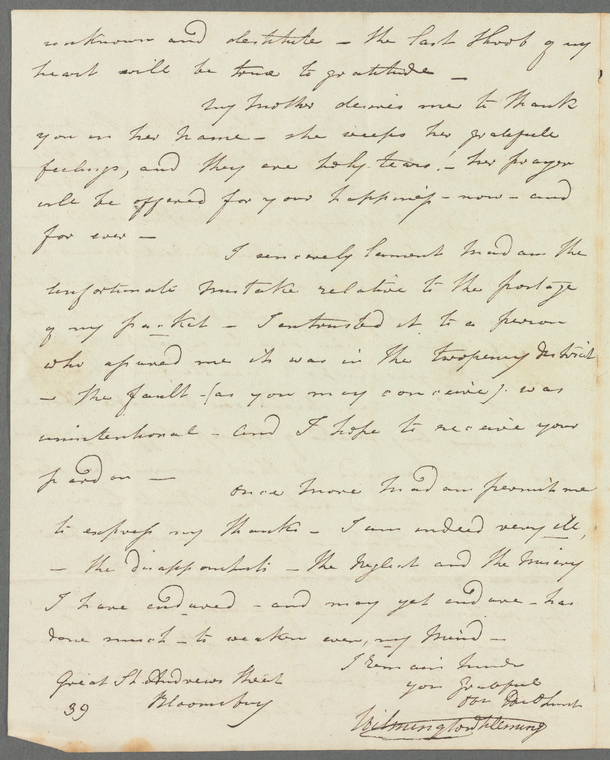 unknown and destitute – the last throb of my
heart will be true to gratitude –
My Mother desires me to thank
you in her name – she weeps her grateful
feelings, and they are holy tears! – her prayer
will be offered for your happiness – now – and
for ever –
I sincerely lament Madam the
unfortunate mistake relative to the postage
of my packet – I entrusted it to a person
who assured me its was in the twopenny district
– the fault – (as you may conceive) was
unintentional – and I hope to receive your
pardon –
Once more Madam permit me
to express my thanks – I am indeed very ill,
– the disappointments – the Neglect and the Misery
I have endured – and may yet endure – has
done much – to weaken even, my Mind –
I Remain Madam
your grateful
Great St Andrews Street
Bloomsbury
39
Wilmington Fleming